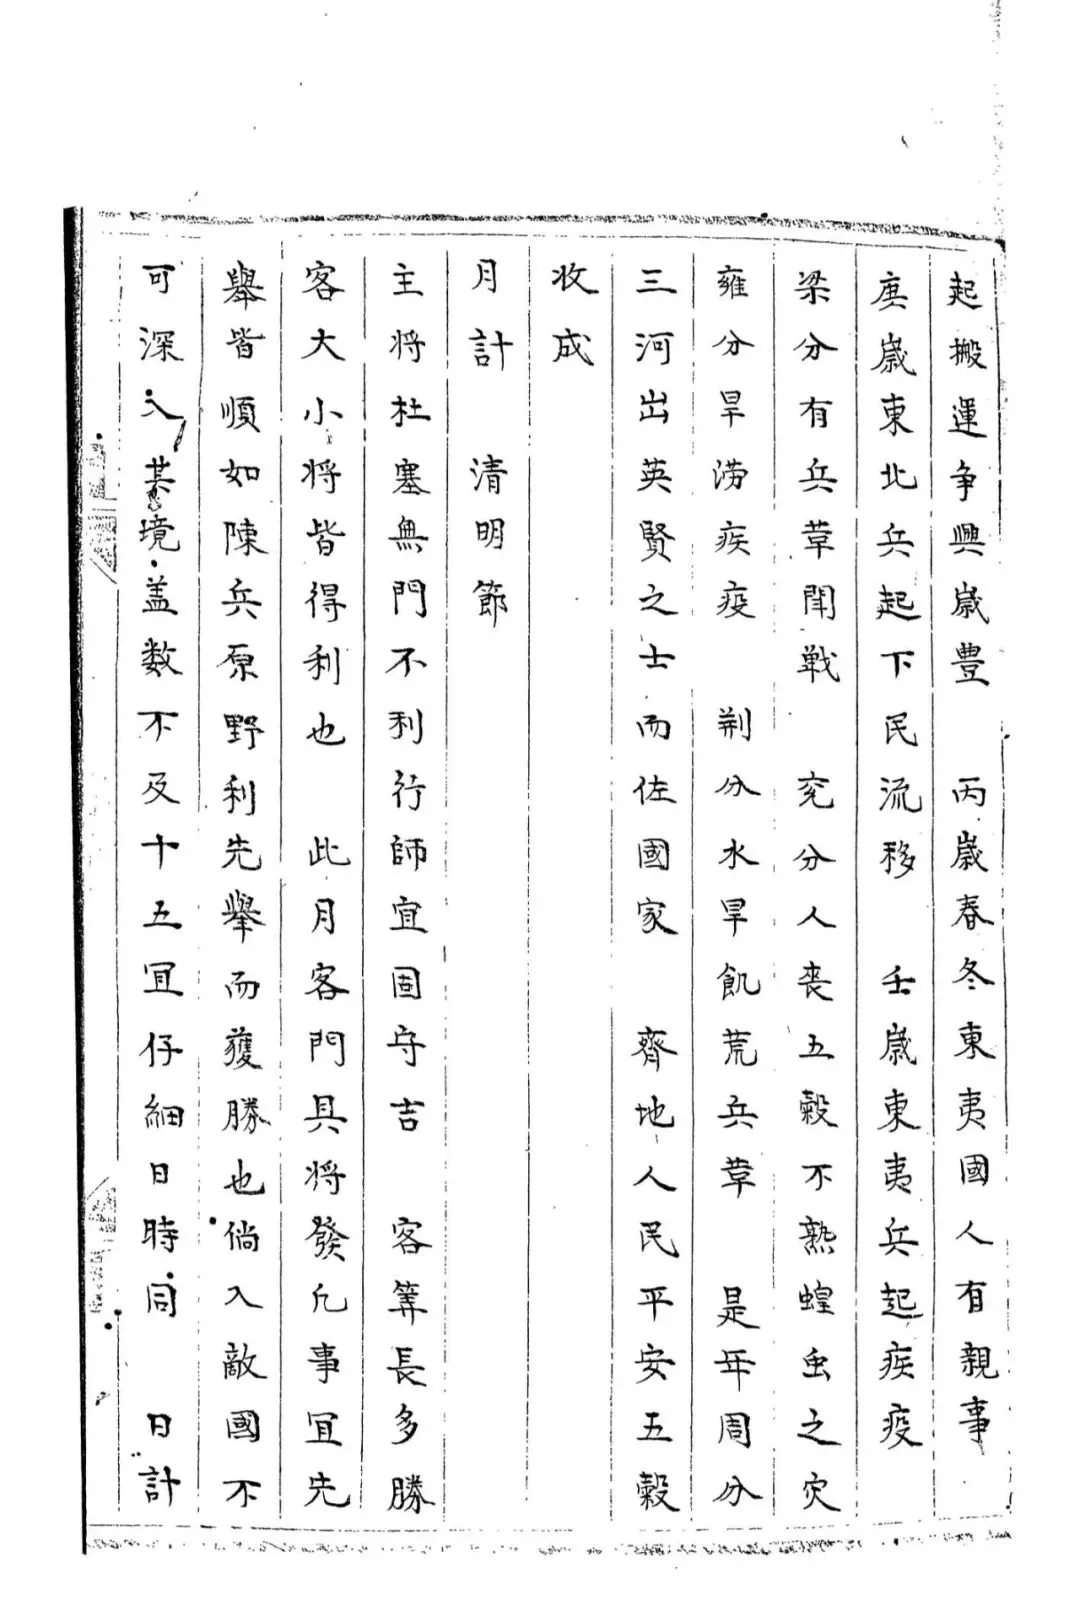 起搬運争興嵗豊　丙嵗春冬東夷國人有親事
庚嵗東北兵起下民流移　壬嵗東夷兵起疾疫
梁分有兵革閗戦　兖分人丧五榖不熟蝗虫之灾
雍分旱涝疾疫　荆分水旱飢荒兵草　是年周分
三河出英賢之士而佐國家　齊地人民平安五穀
收成
月計　清明節
主将杜塞無門不利行師宜固守吉　客筭長多勝
客大小将皆得利也　此月客門具将發凢事冝先
舉皆順如陳兵原野利先舉而獲勝也倘入敵國不
可深入其境盖数不及十五冝仔細日時同　日計